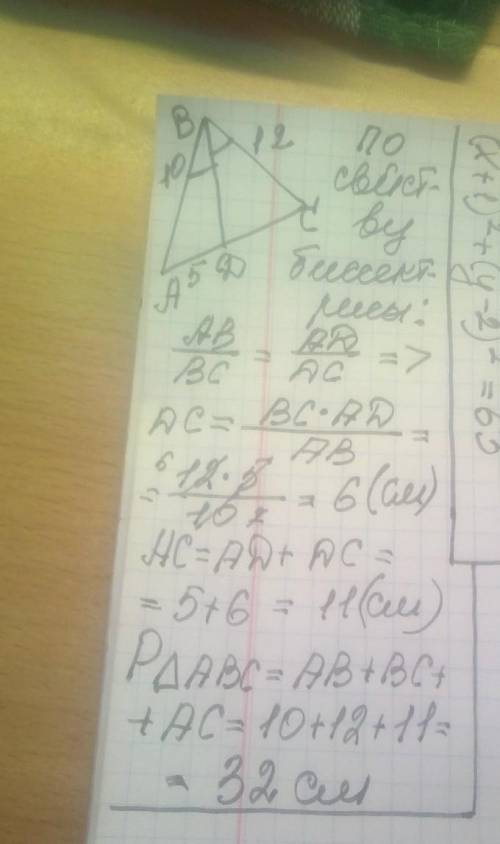 B 12
10
C
A 5 D
по
свойст-
ву
биссект-
рисы:
AB/BC = AD/DC =>
DC = BC·AD/AB =
= 12·5/10 = 6 (см)
6 2
AC = AD + DC =
= 5+6 = 11 (см)
P△ABC = AB + BC +
+ AC = 10+12+11 =
= 32 см
(x+1)²+(y-2)² = 65